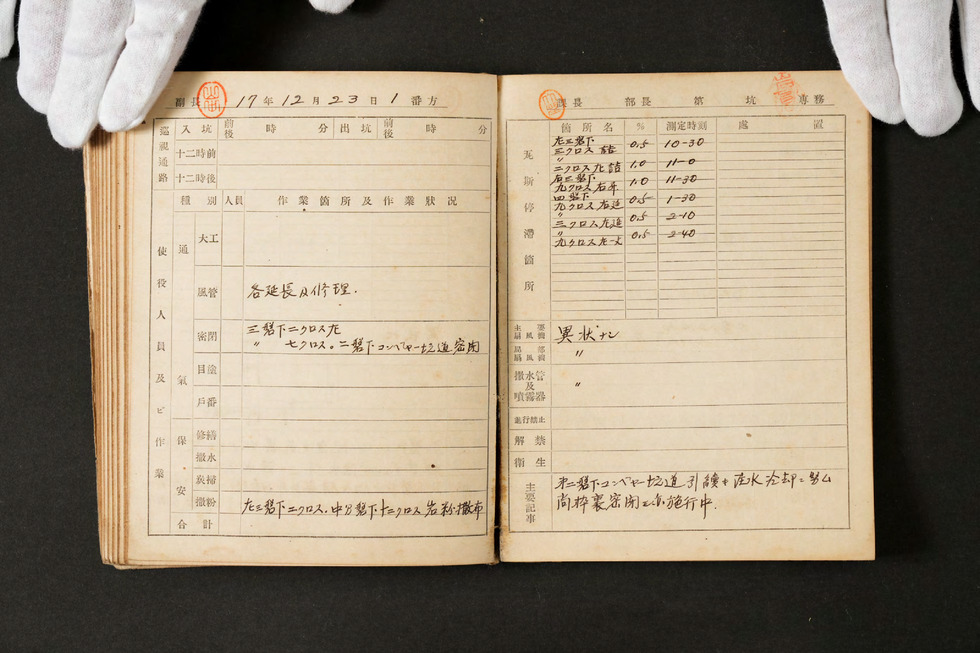 副長 17年12月23日1番方
巡視通路 入坑 前後 時 分 出坑 前後 時 分
十二時前
十二時後
使役人員及ビ作業
種別 人員 作業箇所及作業狀況
通氣
大工
風管 各延長及修理.
密閉 三盤下二クロス左
〃 七クロス。二盤下コンベヤー坑道密閉
目塗
戶番
保安
修繕
撒水
炭掃
撒粉 左三盤下二クロス、中 盤下十二クロス岩粉撒布
合計
課長 部長 第 坑 専務
瓦斯停滯箇所
箇所名 % 測定時刻 處置
左三盤下
三クロス詰 0.5 10-30
〃
二クロス左詰 1.0 11-0
右二盤下
九クロス右 1.0 11-30
四盤下
九クロス右 0.5 1-30
〃
三クロス左 0.5 2-10
〃
九クロス左 0.5 2-40
主要扇風機 異狀ナシ
局部扇風機 〃
撒水管及噴霧器 〃
進行禁止
解禁
衛生
主要記事
第二盤下コンベヤー坑道引續キ注水冷却ニ努ム
尚枠裏密閉 施行中.